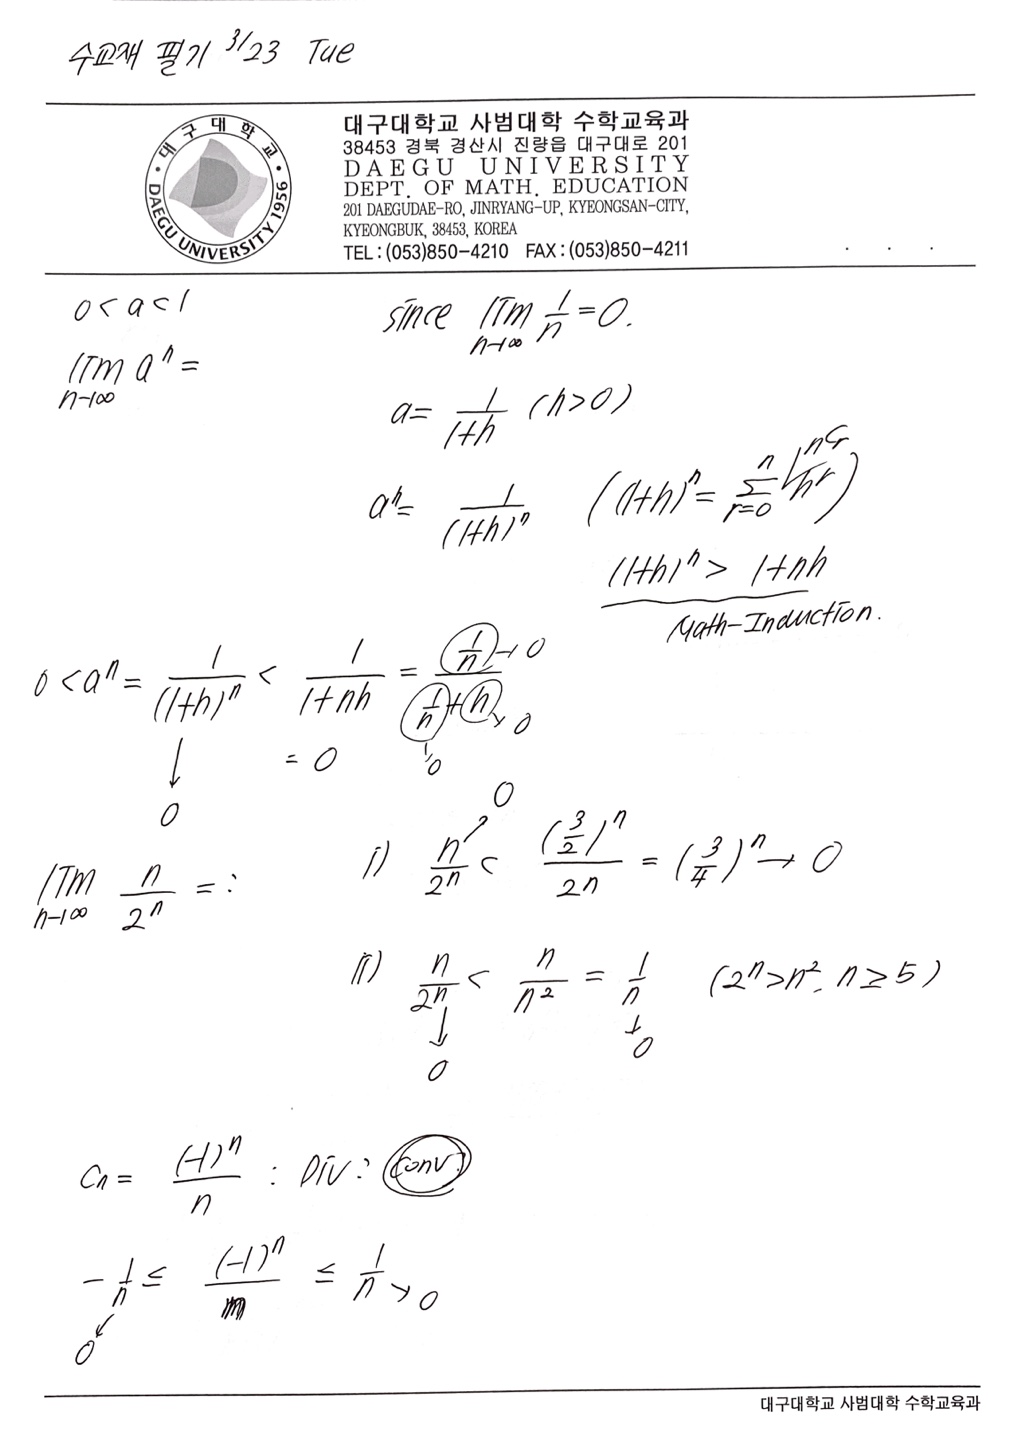 수교재 필기 3/23 Tue
대구대학교
DAEGU UNIVERSITY 1956
대구대학교 사범대학 수학교육과
38453 경북 경산시 진량읍 대구대로 201
DAEGU UNIVERSITY
DEPT. OF MATH. EDUCATION
201 DAEGUDAE-RO, JINRYANG-UP, KYEONGSAN-CITY,
KYEONGBUK, 38453, KOREA
TEL : (053)850-4210 FAX : (053)850-4211
. . .
0 < a < 1
lim_{n→∞} a^n =
since lim_{n→∞} 1/n = 0.
a = 1/(1+h) (h>0)
a^n = 1/(1+h)^n ((1+h)^n = Σ_{r=0}^{n} nCr h^r)
(1+h)^n > 1+nh
Math-Induction.
0 < a^n = 1/(1+h)^n < 1/(1+nh) = (1/n)/(1/n + h) → 0
↓ = 0 → 0 → 0
0
lim_{n→∞} n/2^n = :
i) n/2^n < (3/2)^n/2n = (3/4)^n → 0
→ 0
ii) n/2^n < n/n^2 = 1/n (2^n>n^2, n≥5)
↓ 0 ↓ 0
Cn = (-1)^n/n : Div : conv :
-1/n ≤ (-1)^n/n ≤ 1/n → 0
↙ 0
대구대학교 사범대학 수학교육과